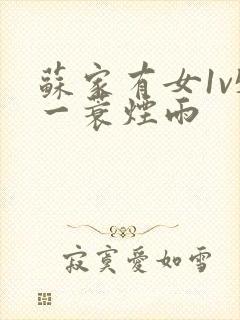 蘇家有女1v
一蓑煙雨
寂寞愛如雪